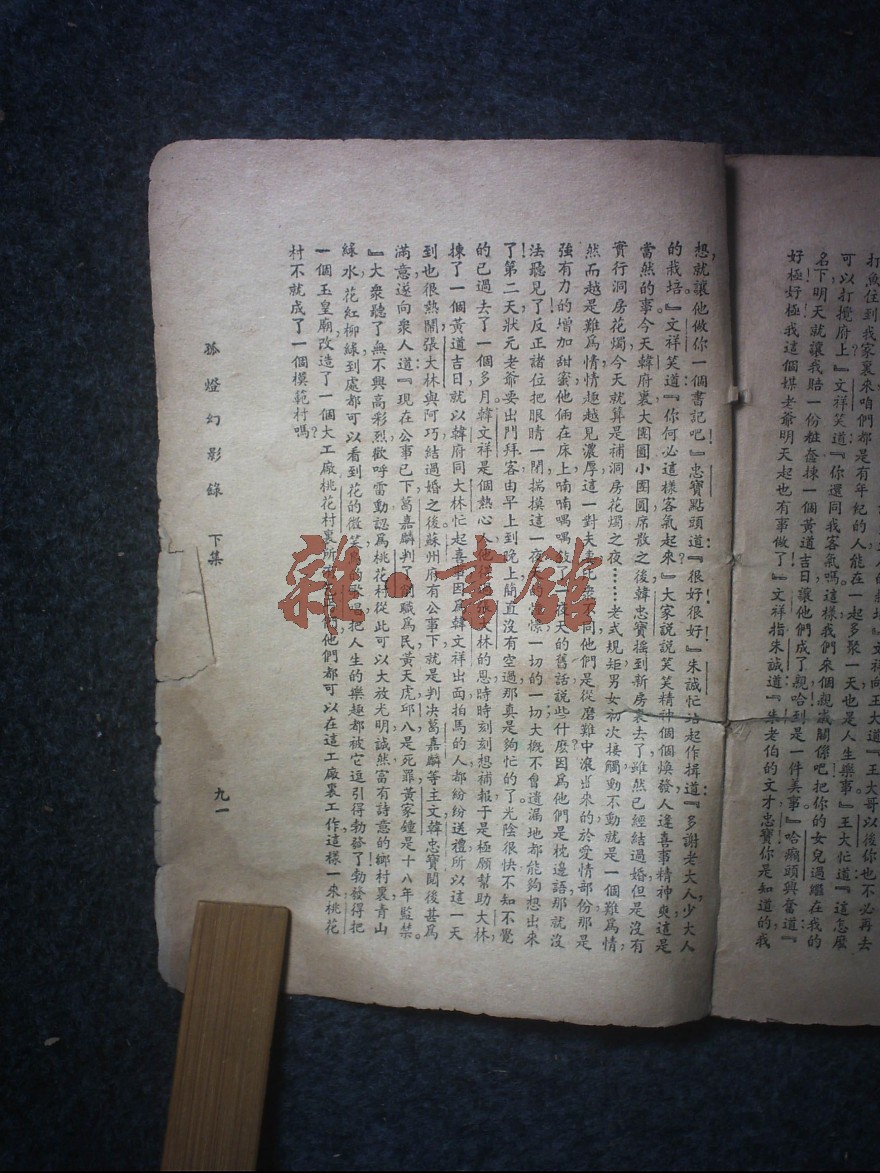 打魚住到我家裏來咱們都是有年紀的人能在一起多聚一天也是人生樂事』王大忙道『這怎麼
可以打攪府上』文祥笑道『你還同我客氣嗎這樣我們來個親戚關係吧把你的女兒過繼在我的
名下明天就讓我賠一份粧奩揀一個黃道吉日讓他們成了親哈到是一件美事』哈癩頭興奮道『
好極好極我這個媒老爺明天起也有事做了』文祥指朱誠道『朱老伯的文才忠寶你是知道的我
想就讓他做你一個書記吧』忠寶點頭道『很好很好』朱誠忙站起作揖道『多謝老大人少大人
的栽培』文祥笑道『你何必這樣客氣起來』大家說說笑笑精神個個煥發人逢喜事精神爽這是
當然的事今天韓府裏大團圓小團圓席散之後韓忠寶搖到新房裏去了雖然已經結過婚但是沒有
實行洞房花燭今天就算是補洞房花燭之夜……老式規矩男女初次接觸動不動就是一個難爲情
然而越是難爲情情趣越見濃厚這一對夫妻不同他們是從磨難中滾出來的於愛情部份那是
強有力的增加甜蜜他倆在床上喃喃喁喁一夜天的舊話說些什麽因爲他們是枕邊語那就沒
法聽見了反正諸位把眼睛一閉揣摸這一夜的一切的一切大概不會遺漏地都能夠想出來
了第二天狀元老爺要出門拜客由早上到晚上簡直沒有空過那真是夠忙的了光陰很快不知不覺
的已過去了一個多月韓文祥是個熱心人他大林的恩時時刻刻想補報于是極願幫助大林
揀了一個黃道吉日就以韓府同大林忙起喜事因爲韓文祥出面拍馬的人都紛紛送禮所以這一天
到也很熱鬧張大林與阿巧結過婚之後蘇州府有公事下就是判決葛嘉麟等主文韓忠寶閱後甚爲
滿意遂向衆人道『現在公事已下葛嘉麟判了削職爲民黃天虎邱八是死罪黃家鐘是十八年監禁
』大衆聽了無不興高彩烈歡呼雷動認爲桃花村從此可以大放光明誠然富有詩意的鄉村裏青山
綠水花紅柳綠到處都可以看到花的微笑鳥的歌唱把人生的樂趣都被它逗引得勃發了勃發得把
一個玉皇廟改造了一個大工廠桃花村裏所他們都可以在這工廠裏工作這樣一來桃花
村不就成了一個模範村嗎？
孤燈幻影錄 下集
九一
雜·書館